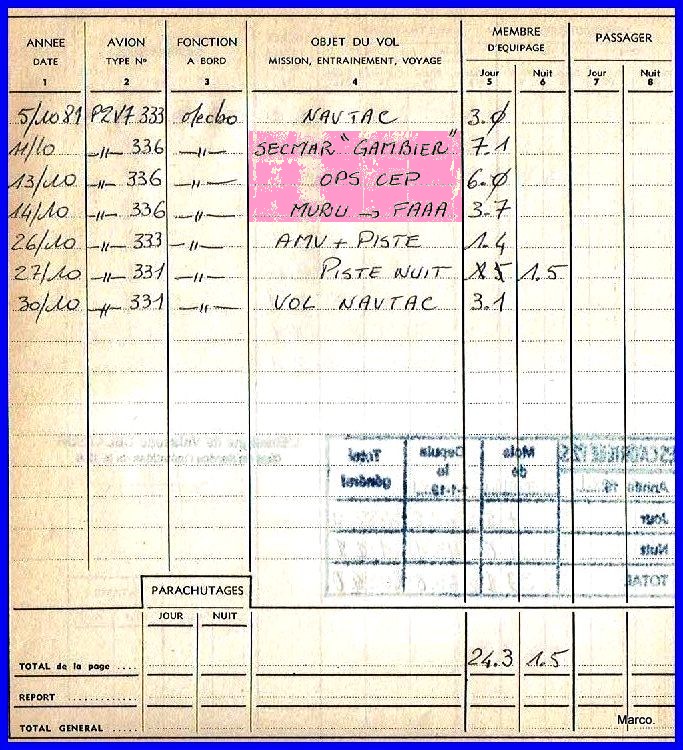 ANNEE AVION FONCTION OBJET DU VOL MEMBRE D'EQUIPAGE PASSAGER
DATE TYPE N° A BORD MISSION, ENTRAINEMENT, VOYAGE Jour Nuit Jour Nuit
1 2 3 4 5 6 7 8
5/10 81 P2V7 333 mecbo NAVTAC 3.0
11/10 -"- 336 -"- SECMAR "GAMBIER" 7.1
13/10 -"- 336 -"- OPS CEP 6.0
14/10 -"- 336 -"- MURU → FAAA 3.7
26/10 -"- 333 -"- AMV + PISTE 1.4
27/10 -"- 331 -"- PISTE NUIT 1.5
30/10 -"- 331 -"- VOL NAVTAC 3.1
Total général Depuis le 1-1-19 Mois de ESCADRILLE 12S
Année 19
Jour
Nuit
TOTAL
PARACHUTAGES
JOUR NUIT
TOTAL de la page .... 24.3 1.5
REPORT ............
TOTAL GENERAL .....
Marco.